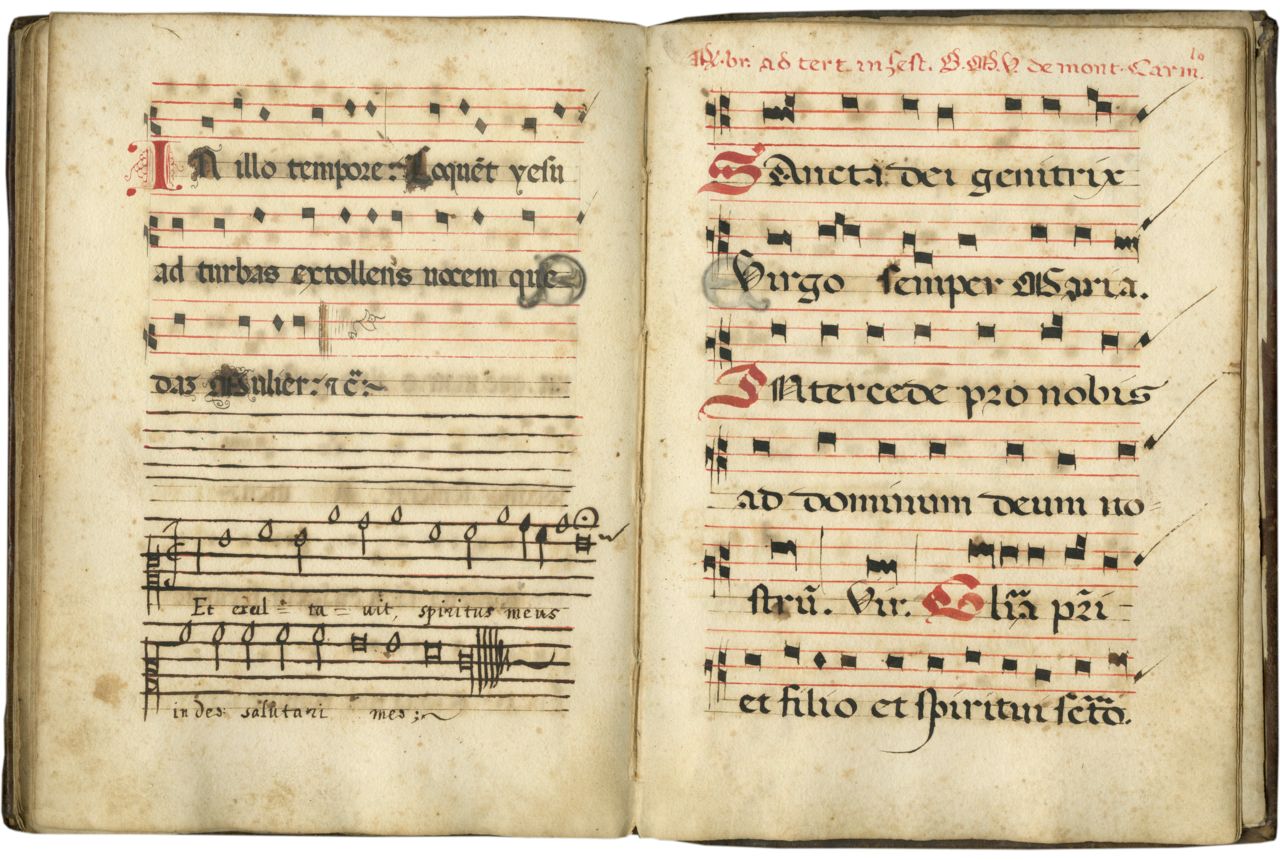 IN illo tempore: Loquēt yesu
ad turbas extollens uocem que-
daz Mulier: ⁊ c̄:~
Et exul = ta = uit, spiritus meus
in deo: salutari meo ;~
br. ad tert in fest. B. M. V. de mont. Carm.
10
SAncta dei genitrix
Virgo semper Maria.
INtercede pro nobis
ad dominum deum no-
strū. Vir. Gl̄ia pr̄i
et filio et spiritui sc̄tō.